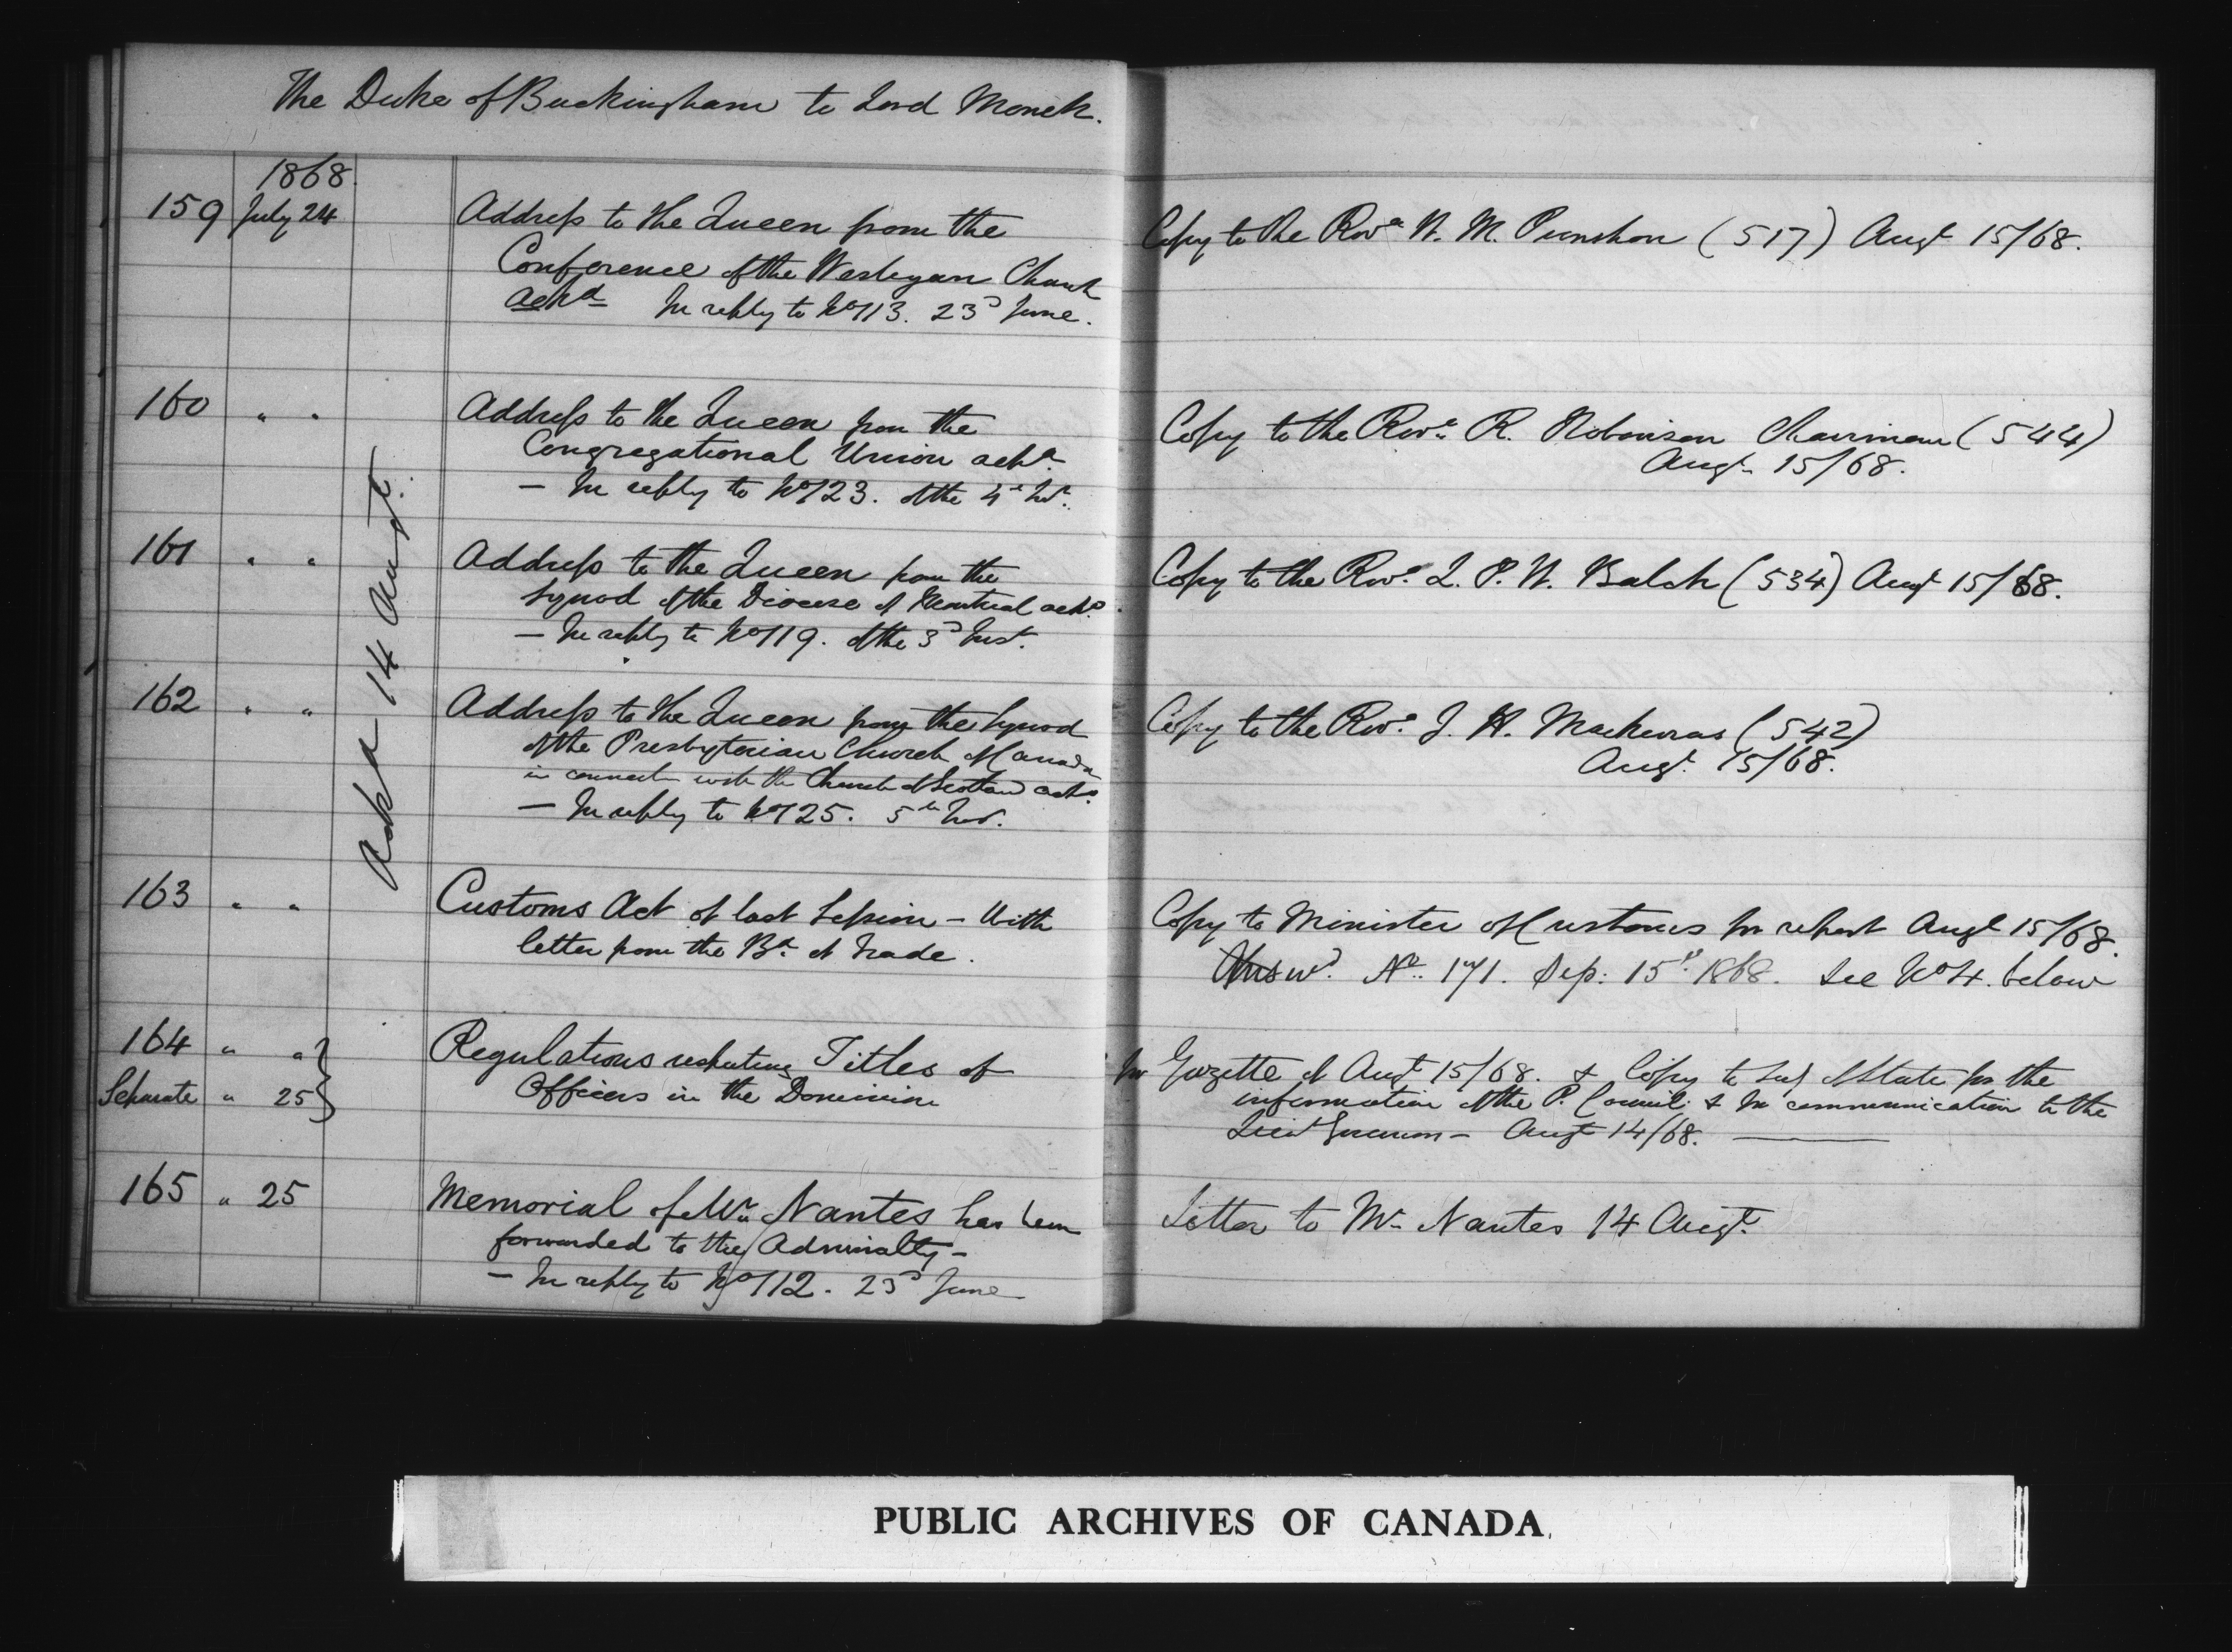 The Duke of Buckingham to Lord Monck.
1868.
159 July 24 Address to the Queen from the
Conference of the Wesleyan Church
ackd In reply to No 113. 23d June.
Copy to the Revd W. M. Punshon (517) Augt 15/68.
160 " " Address to the Queen from the
Congregational Union ackd
— In reply to No 123. of the 4th Inst.
Copy to the Revd R. Robinson Chairman (544)
Augt 15/68.
Ackd 14 Augt.
161 " " Address to the Queen from the
Synod of the Diocese of Montreal ackd
— In reply to No 119. of the 3d Inst.
Copy to the Revd L. P. W. Balch (534) Augt 15/68.
162 " " Address to the Queen from the Synod
of the Presbyterian Church of Canada
in connectn with the Church of Scotland ackd
— In reply to No 125. 5th Inst.
Copy to the Revd J. H. Mackerras (542)
Augt. 15/68.
163 " " Customs Act of last Session – With
letter from the Bd of Trade.
Copy to Minister of Customs for report Augt 15/68.
Answd. No. 171. Sep: 15th 1868. See No 4. below
164 " " Regulations respecting Titles of
Separate " 25 Officers in the Dominion
In Gazette of Augt 15/68. & Copy to Secy of State for the
information of the P. Council & for communication to the
Lieut Governors – Augt 14/68.
165 " 25 Memorial of Mr. Nantes has been
forwarded to the Admiralty –
— In reply to No 112. 23d June
Letter to Mr Nantes 14 Augt.
PUBLIC ARCHIVES OF CANADA